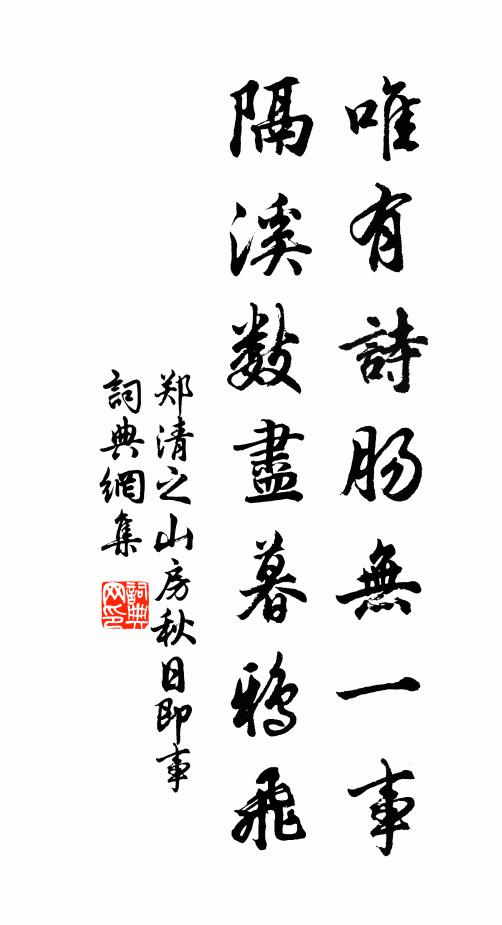 唯有詩肠無一事
隔溪数盡暮鴉飛
郑清之山房秋日即事
詞典網集
詞典
网印